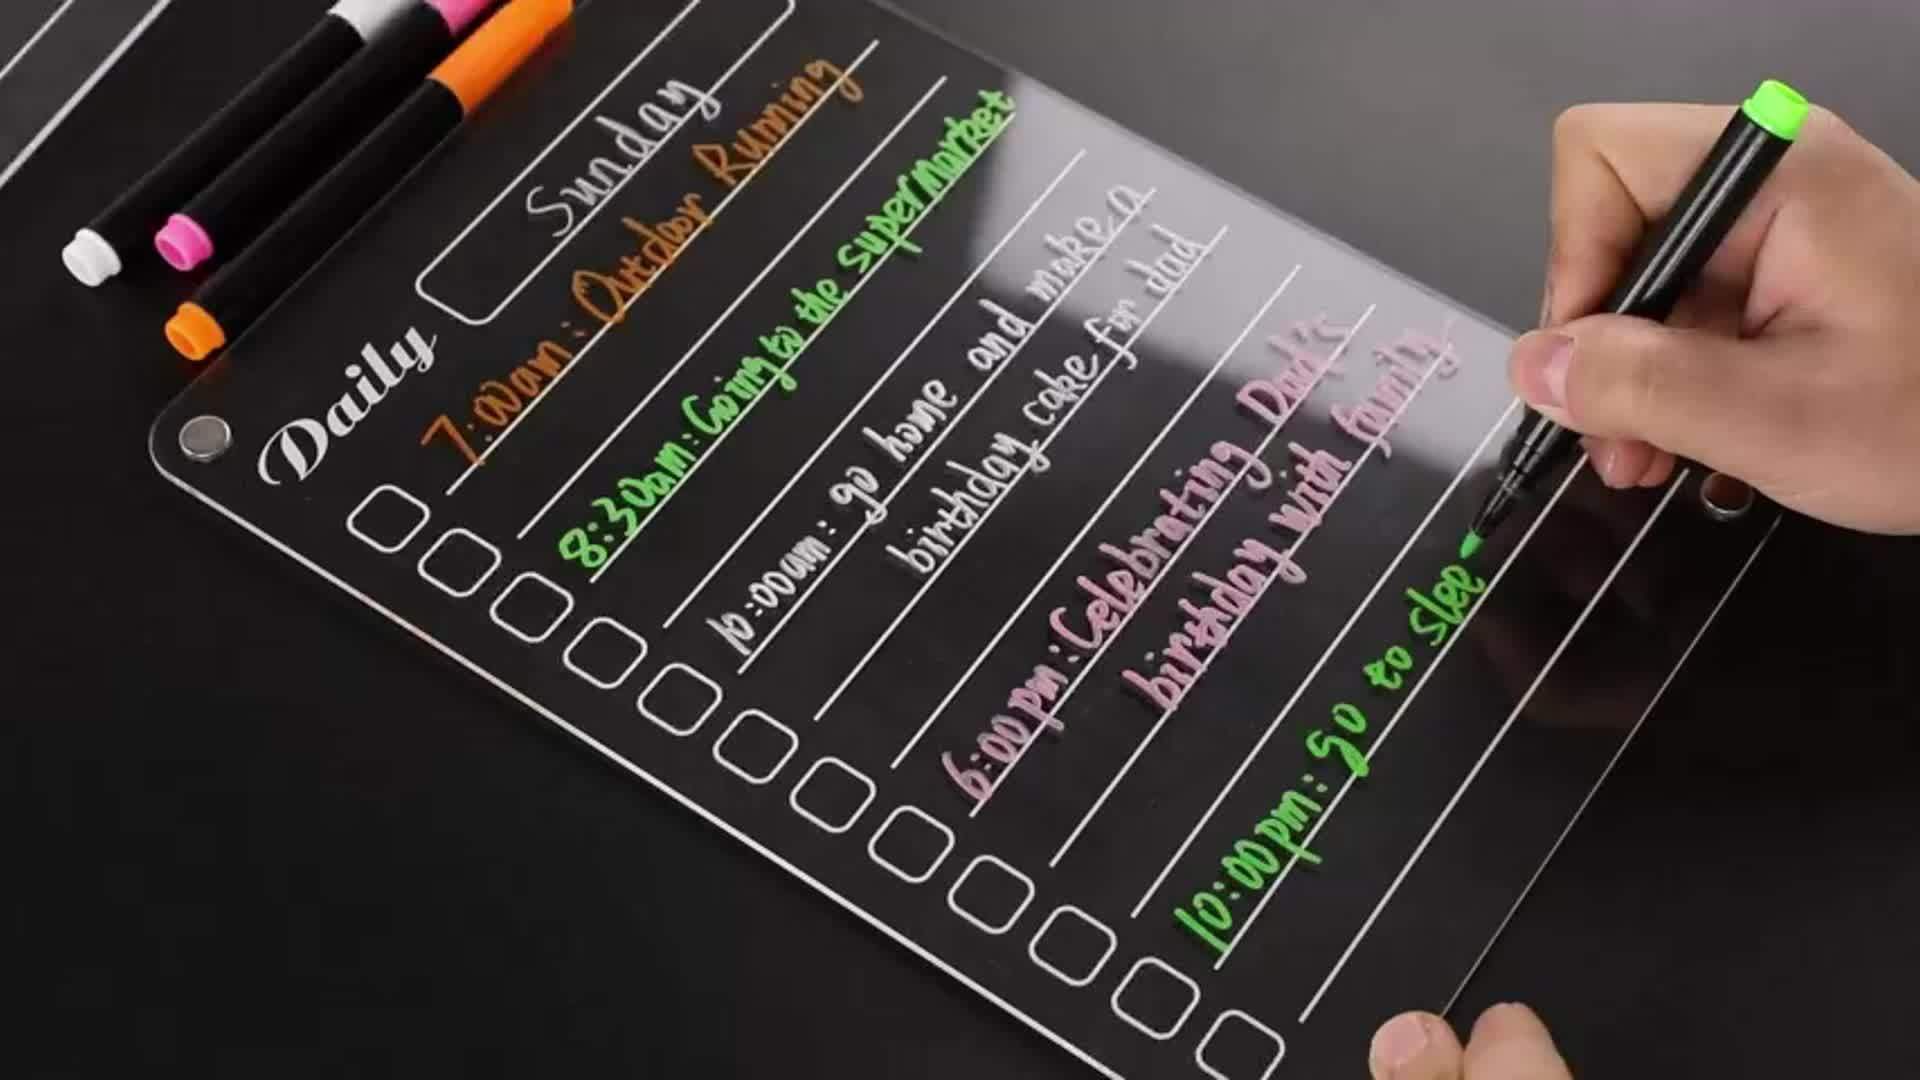 Daily Sunday
7:00am: Outdoor Running
8:30am: Going to the supermarket
10:00am: go home and make a
birthday cake for dad
6:00pm: Celebrating Dad's
birthday with family
10:00pm: go to slee